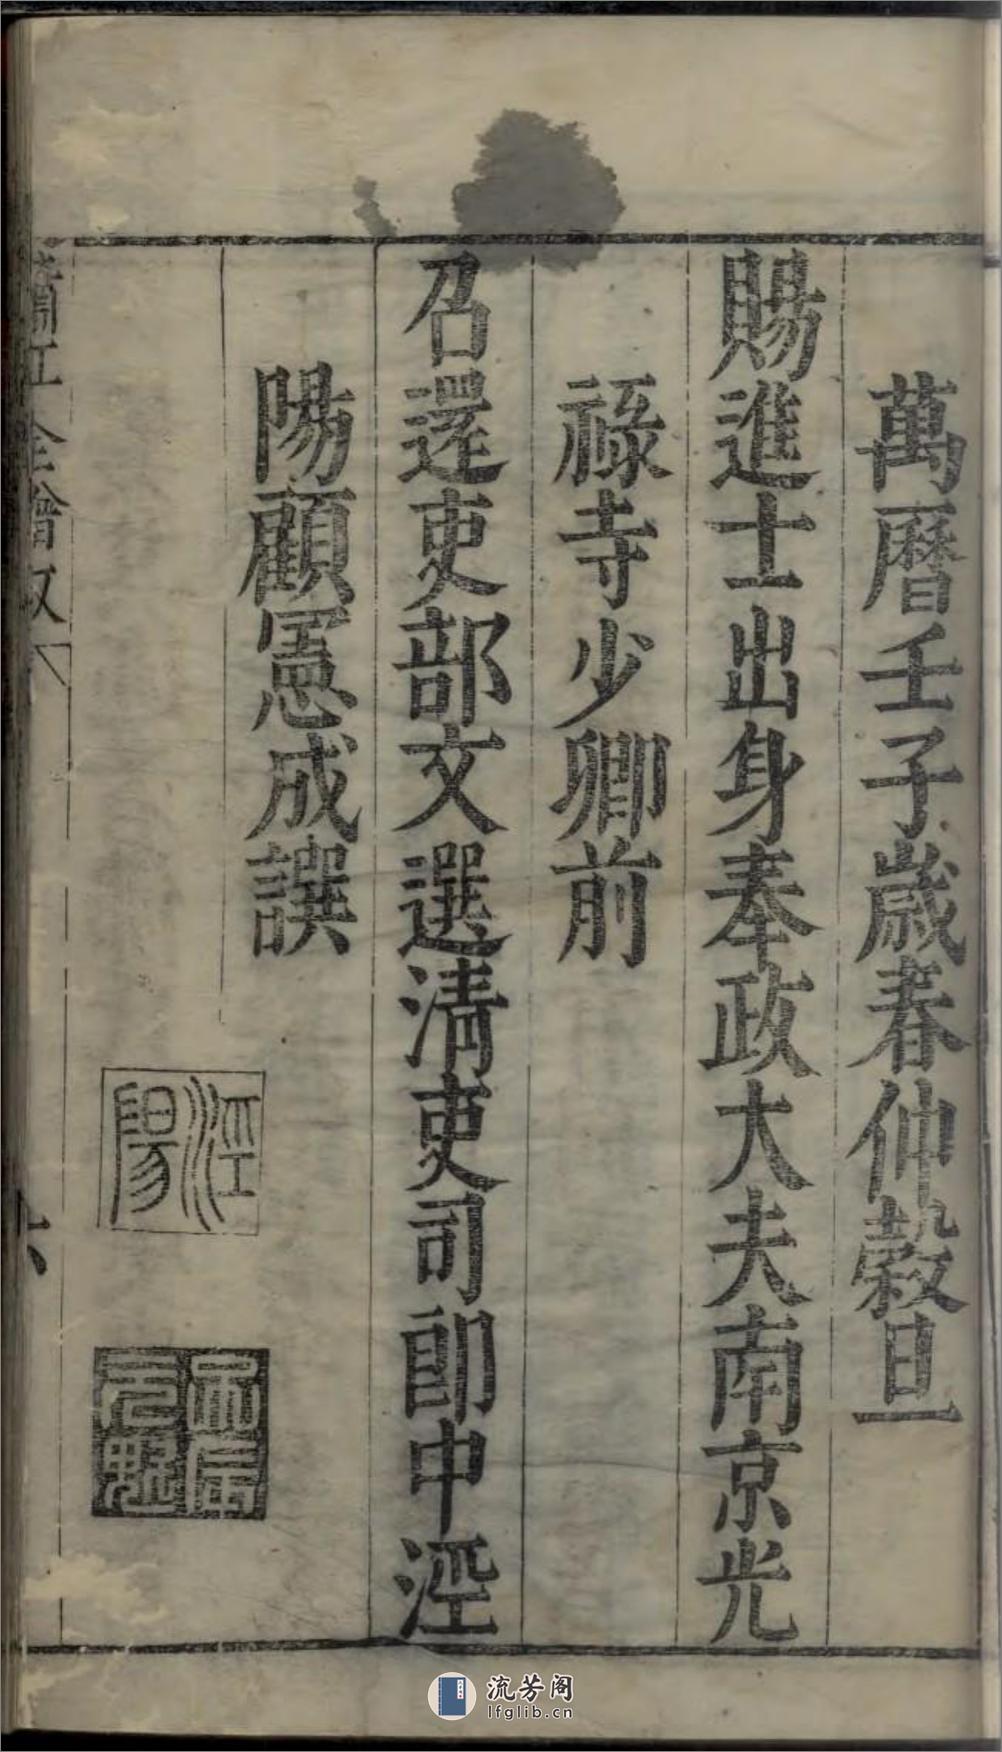 萬曆壬子歲春仲穀旦
賜進士出身奉政大夫南京光
祿寺少卿前
召還吏部文選清吏司郎中涇
陽顧憲成譔
涇陽
蕭江全譜叙
六
流芳阁
lfglib.cn